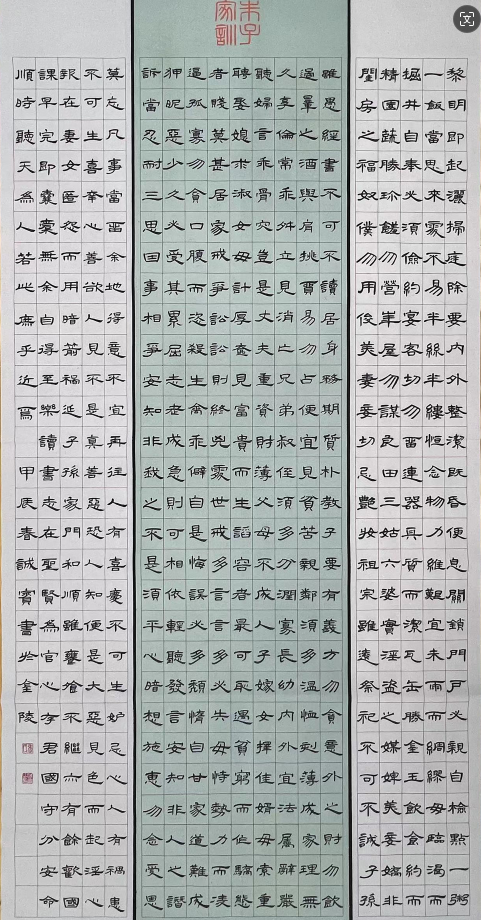 朱子家訓
黎明即起灑掃庭除要內外整潔既昏便息關鎖門戶必親自檢點一粥
一飯當思來處不易半絲半縷恒念物力維艱宜未雨而綢繆毋臨渴而
掘井自奉必須儉約宴客切勿留連器具質而潔瓦缶勝金玉飲食約而
精園蔬勝珍饈勿營華屋勿謀良田三姑六婆實淫盜之媒婢美妾嬌非
閨房之福奴僕勿用俊美妻妾切忌豔妝祖宗雖遠祭祀不可不誠子孫
雖愚經書不可不讀居身務期質朴教子要有義方勿貪意外之財勿飲
過量之酒與肩挑貿易勿占便宜見貧苦親鄰須多溫恤刻薄成家理無
久享倫常乖舛立見消亡兄弟叔侄須多分潤寡長幼內外宜法屬辭嚴
聽婦言乖骨肉豈是丈夫重資財薄父母不成人子嫁女擇佳婿毋索重
聘娶媳求淑女毋計厚奩見富貴而生諂容者最可恥遇貧窮而作驕態
者賤莫甚居家戒爭訟訟則終凶處世戒多言言多必失毋恃勢力而凌
逼孤寡勿貪口腹而恣殺生禽乖僻自是悔誤必多頹惰自甘家道難成
狎昵惡少久必受其累屈志老成急則可相依輕聽發言安知非人之譖
訴當忍耐三思因事相爭安知非我之不是須平心暗想施惠勿念受恩
莫忘凡事當留余地得意不宜再往人有喜慶不可生妒忌心人有禍患
不可生喜幸心善欲人見不是真善惡恐人知便是大惡見色而起淫心
報在妻女匿怨而用暗箭禍延子孫家門和順雖饔飧不繼亦有餘歡國
課早完即囊橐無余自得至樂讀書志在聖賢為官心存君國守分安命
順時聽天為人若此庶乎近焉 甲辰春誠賓書於金陵